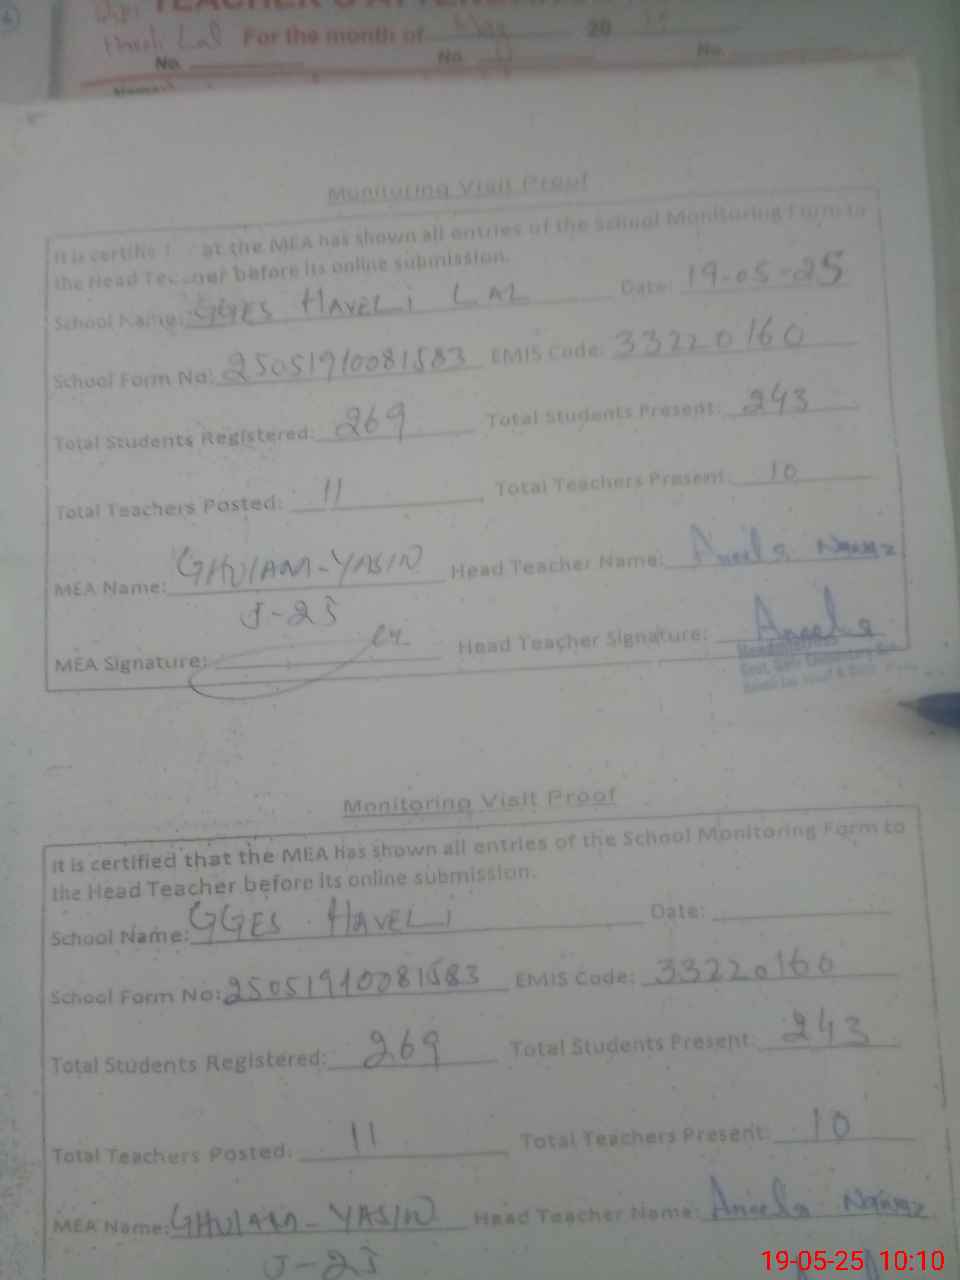 For the month of May 20
No. No. 11 No.
Monitoring Visit Proof
It is at the MEA has shown all entries of the School Monitoring Form to
the Head before its online submission.
School Name: GGES HAVELI LAL Date: 19-05-25
School Form No: 25051910081583 EMIS Code: 33220160
Total Students Registered: 269 Total Students Present: 243
Total Teachers Posted: 11 Total Teachers Present: 10
MEA Name: GHULAM-YASIN Head Teacher Name: Aneela
J-25
MEA Signature: Head Teacher Signature: Aneela
Monitoring Visit Proof
It is certified that the MEA has shown all entries of the School Monitoring Form to
the Head Teacher before its online submission.
School Name: GGES HAVELI Date:
School Form No: 25051910081583 EMIS Code: 33220160
Total Students Registered: 269 Total Students Present: 243
Total Teachers Posted: 11 Total Teachers Present: 10
MEA Name: GHULAM-YASIN Head Teacher Name: Aneela
J-25
19-05-25 10:10